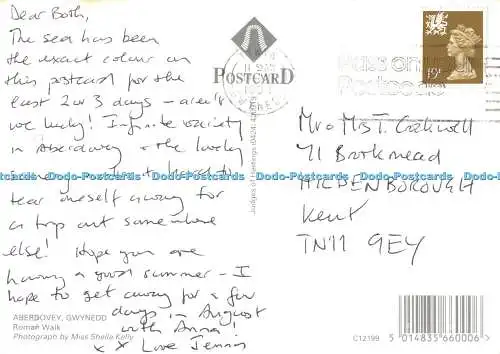 Dear Both,
The sea has been
the exact colour on
this postcard for the
last 2 or 3 days – aren't
we lucky! Infinite variety
in Aberdovey & the lovely
tear oneself away for
a trip out somewhere
else! Hope you are
having a good summer – I
hope to get away for a few
days in August
with Anna!
x x Love Jenny
ABERDOVEY, GWYNEDD
Roman Walk
Photograph by Miss Sheila Kelly
POSTCARD
Judges of Hastings
19p
Pass on
Postcode
Mr & Mrs T.
71 Brookmead
HILDENBOROUGH
Kent
TN11 9EY
C12199
5 014835 660006
Dodo-Postcards Dodo-Postcards Dodo-Postcards Dodo-Postcards Dodo-Postcards Dodo-Postcards